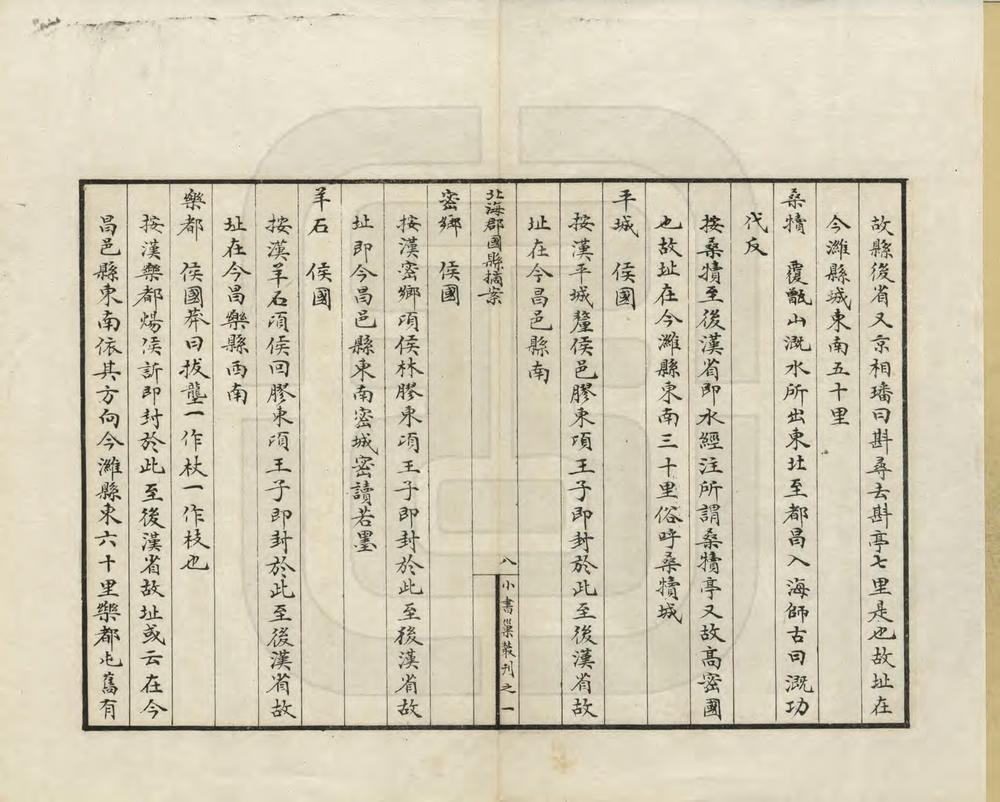 故縣後省又京相璠曰斟尋去斟亭七里是也故址在
今濰縣城東南五十里
桑犢　覆甑山溉水所出東北至都昌入海師古曰溉功
代反
按桑犢至後漢省即水經注所謂桑犢亭又故高密國
也故址在今濰縣東南三十里俗呼桑犢城
平城　侯國
按漢平城釐侯邑膠東項王子即封於此至後漢省故
址在今昌邑縣南
北海郡國縣摘案
八
小書巢叢刊之一
密鄉　侯國
按漢密鄉頃侯林膠東項王子即封於此至後漢省故
址即今昌邑縣東南密城密讀若墨
羊石　侯國
按漢羊石頃侯回膠東項王子即封於此至後漢省故
址在今昌樂縣西南
樂都　侯國莽曰拔壟一作杖一作枝也
按漢樂都煬侯訢即封於此至後漢省故址或云在今
昌邑縣東南依其方向今濰縣東六十里樂都屯舊有